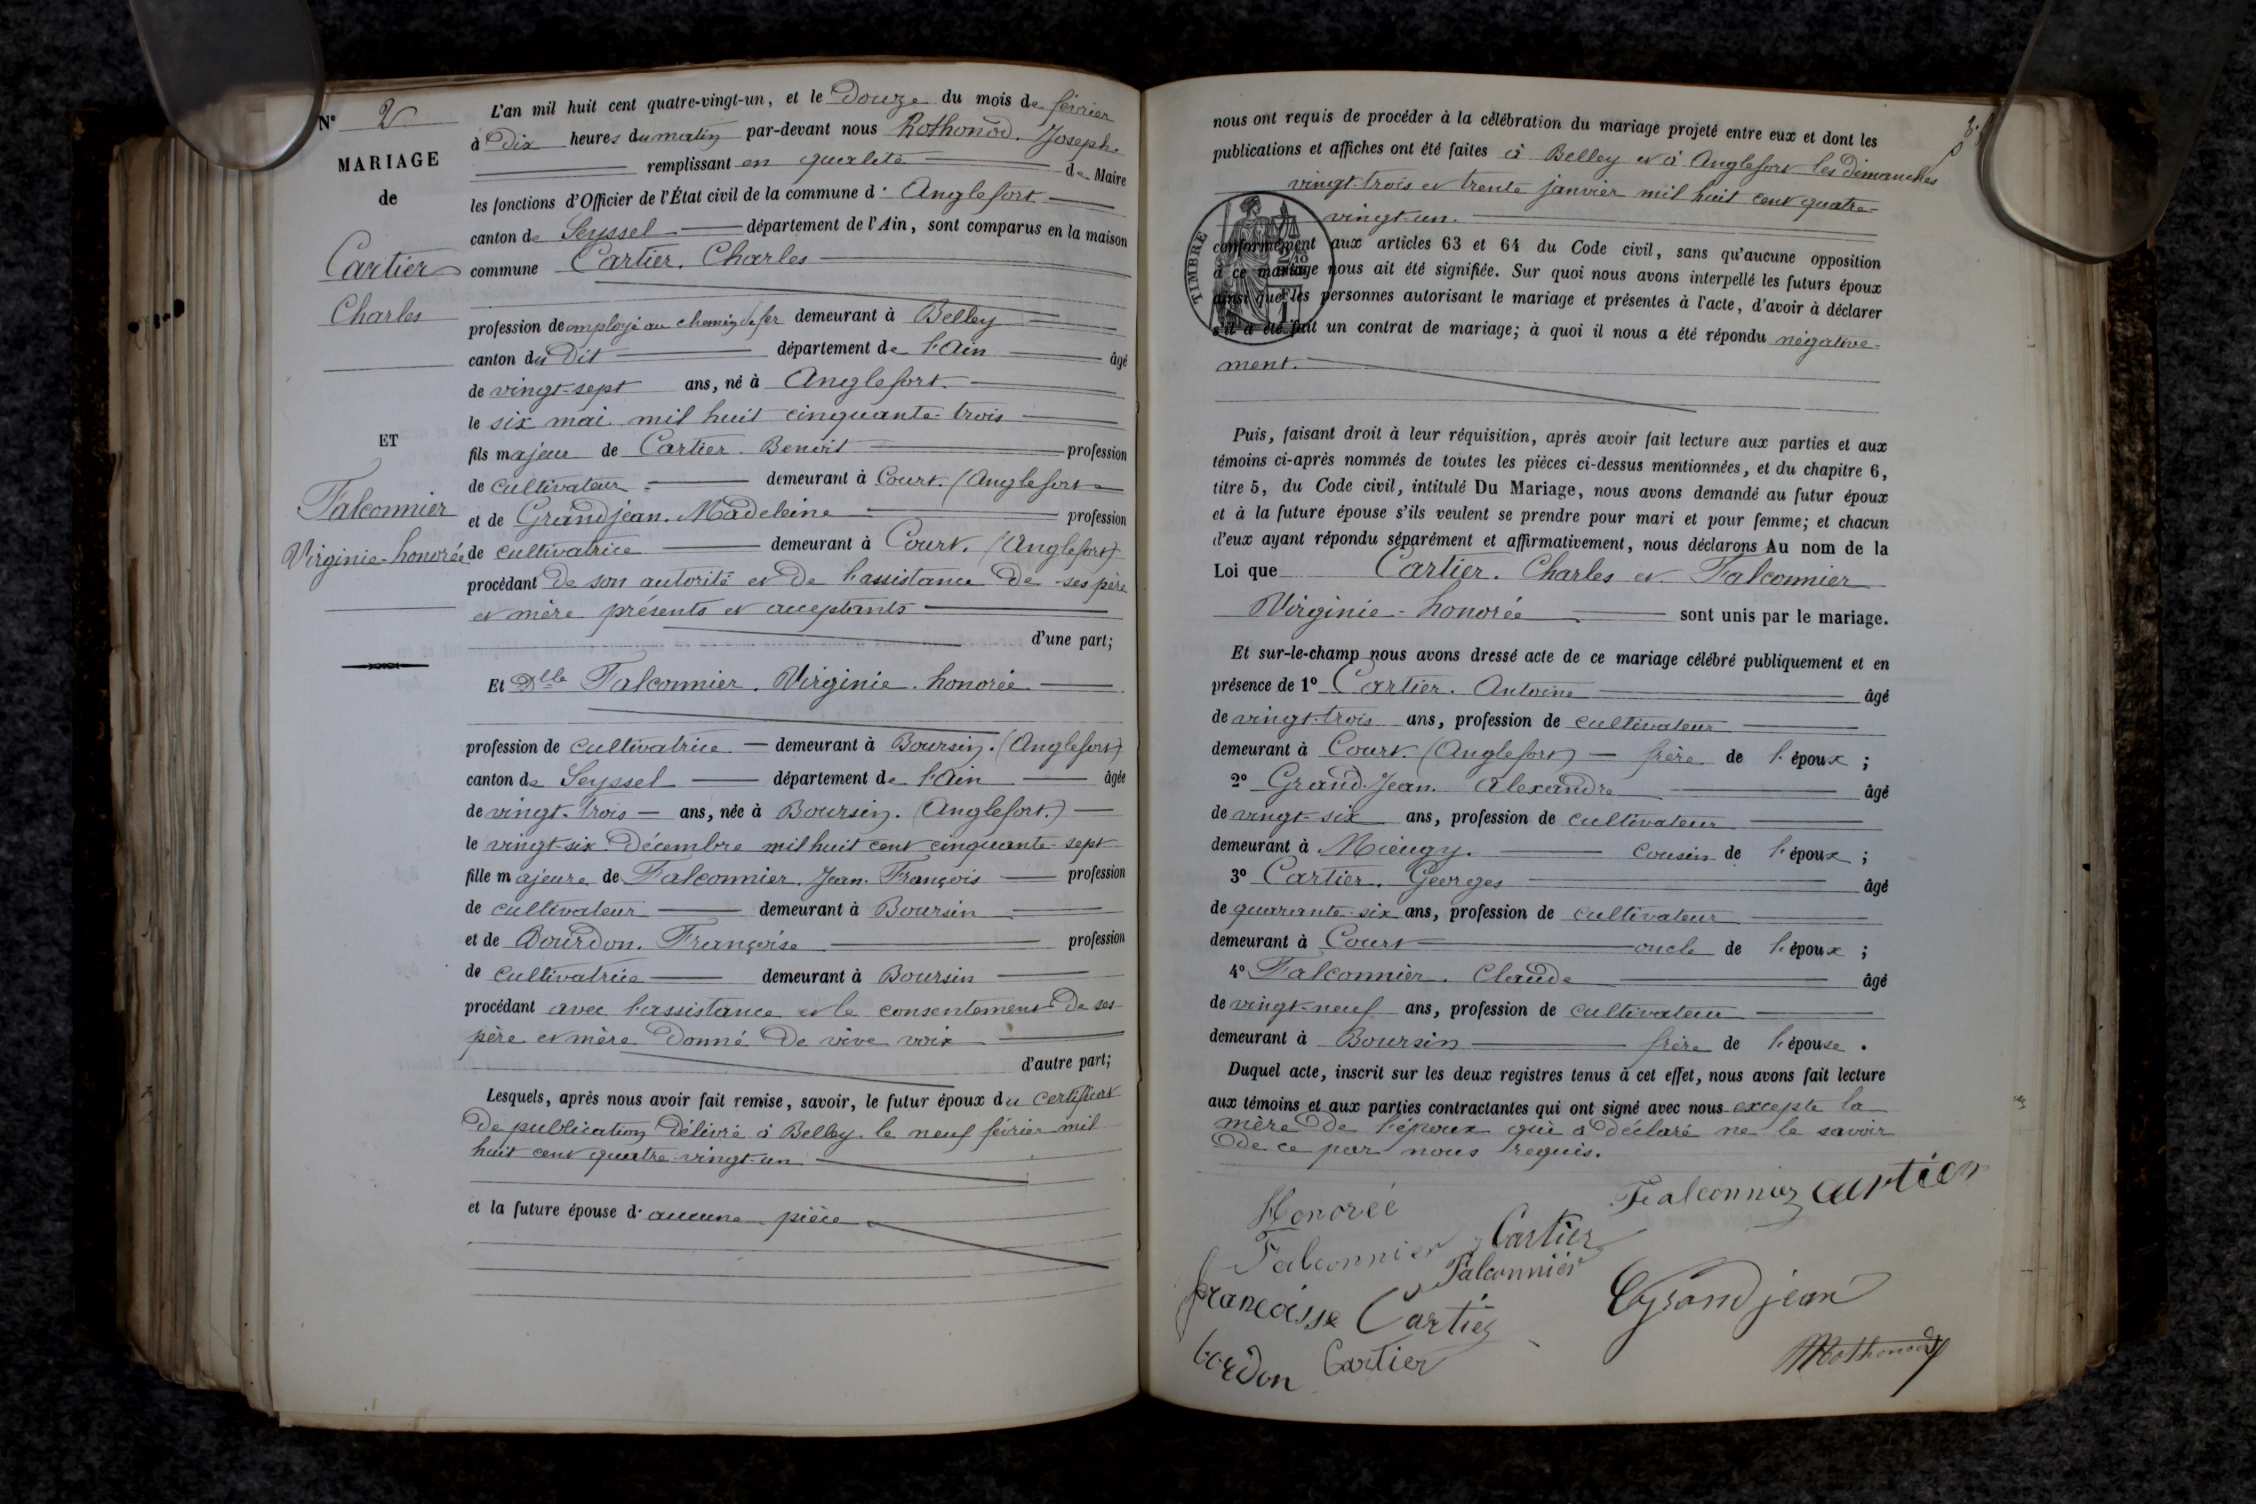 N° 2
MARIAGE
de
Cartier
Charles
ET
Falconnier
Virginie-honorée
L'an mil huit cent quatre-vingt-un, et le Douze du mois de février
à Dix heures du matin par-devant nous Rothonod. Joseph
remplissant en qualité de Maire
les fonctions d'Officier de l'État civil de la commune d'Anglefort
canton de Seyssel département de l'Ain, sont comparus en la maison
commune Cartier. Charles
profession de employé au chemin de fer demeurant à Belley
canton du Dit département de l'Ain âgé
de vingt-sept ans, né à Anglefort.
le six mai mil huit cinquante-trois
fils majeur de Cartier. Benoit profession
de cultivateur demeurant à Court. (Anglefort
et de Grandjean. Madeleine profession
de cultivatrice demeurant à Court. (Anglefort)
procédant De son autorité et De l'assistance De ses père
et mère présents et acceptants
d'une part;
Et Dlle Falconnier. Virginie. honorée
profession de cultivatrice demeurant à Boursin. (Anglefort)
canton de Seyssel département de l'Ain âgée
de vingt-trois ans, née à Boursin. (Anglefort.)
le vingt-six Décembre mil huit cent cinquante-sept
fille majeure de Falconnier. Jean-François profession
de cultivateur demeurant à Boursin
et de Bourdon. Françoise profession
de cultivatrice demeurant à Boursin
procédant avec l'assistance et le consentement De ses
père et mère Donné De vive voix
d'autre part;
Lesquels, après nous avoir fait remise, savoir, le futur époux du certificat
De publication Délivré à Belley le neuf février mil
huit cent quatre-vingt-un
et la future épouse d'aucune pièce
nous ont requis de procéder à la célébration du mariage projeté entre eux et dont les
publications et affiches ont été faites à Belley et à Anglefort les dimanches
vingt-trois et trente janvier mil huit cent quatre-
vingt-un.
TIMBRE
conformément aux articles 63 et 64 du Code civil, sans qu'aucune opposition
à ce mariage nous ait été signifiée. Sur quoi nous avons interpellé les futurs époux
ainsi que les personnes autorisant le mariage et présentes à l'acte, d'avoir à déclarer
s'il a été fait un contrat de mariage; à quoi il nous a été répondu négative-
ment.
Puis, faisant droit à leur réquisition, après avoir fait lecture aux parties et aux
témoins ci-après nommés de toutes les pièces ci-dessus mentionnées, et du chapitre 6,
titre 5, du Code civil, intitulé Du Mariage, nous avons demandé au futur époux
et à la future épouse s'ils veulent se prendre pour mari et pour femme; et chacun
d'eux ayant répondu séparément et affirmativement, nous déclarons Au nom de la
Loi que Cartier. Charles et Falconnier
Virginie-honorée sont unis par le mariage.
Et sur-le-champ nous avons dressé acte de ce mariage célébré publiquement et en
présence de 1° Cartier. Antoine âgé
de vingt-trois ans, profession de cultivateur
demeurant à Court. (Anglefort) frère de l'époux ;
2° Grand-Jean. Alexandre âgé
de vingt-six ans, profession de cultivateur
demeurant à Mieugy. cousin de l'époux ;
3° Cartier. Georges âgé
de quarante-six ans, profession de cultivateur
demeurant à Court oncle de l'époux ;
4° Falconnier. Claude âgé
de vingt-neuf ans, profession de cultivateur
demeurant à Boursin frère de l'épouse .
Duquel acte, inscrit sur les deux registres tenus à cet effet, nous avons fait lecture
aux témoins et aux parties contractantes qui ont signé avec nous excepté la
mère De l'époux qui a Déclaré ne le savoir
De ce par nous requis.
Falconnier Cartier
Honorée
Falconnier Cartier
Falconnier
Françoisse Cartier Grandjean
bordon Cartier Rothonod